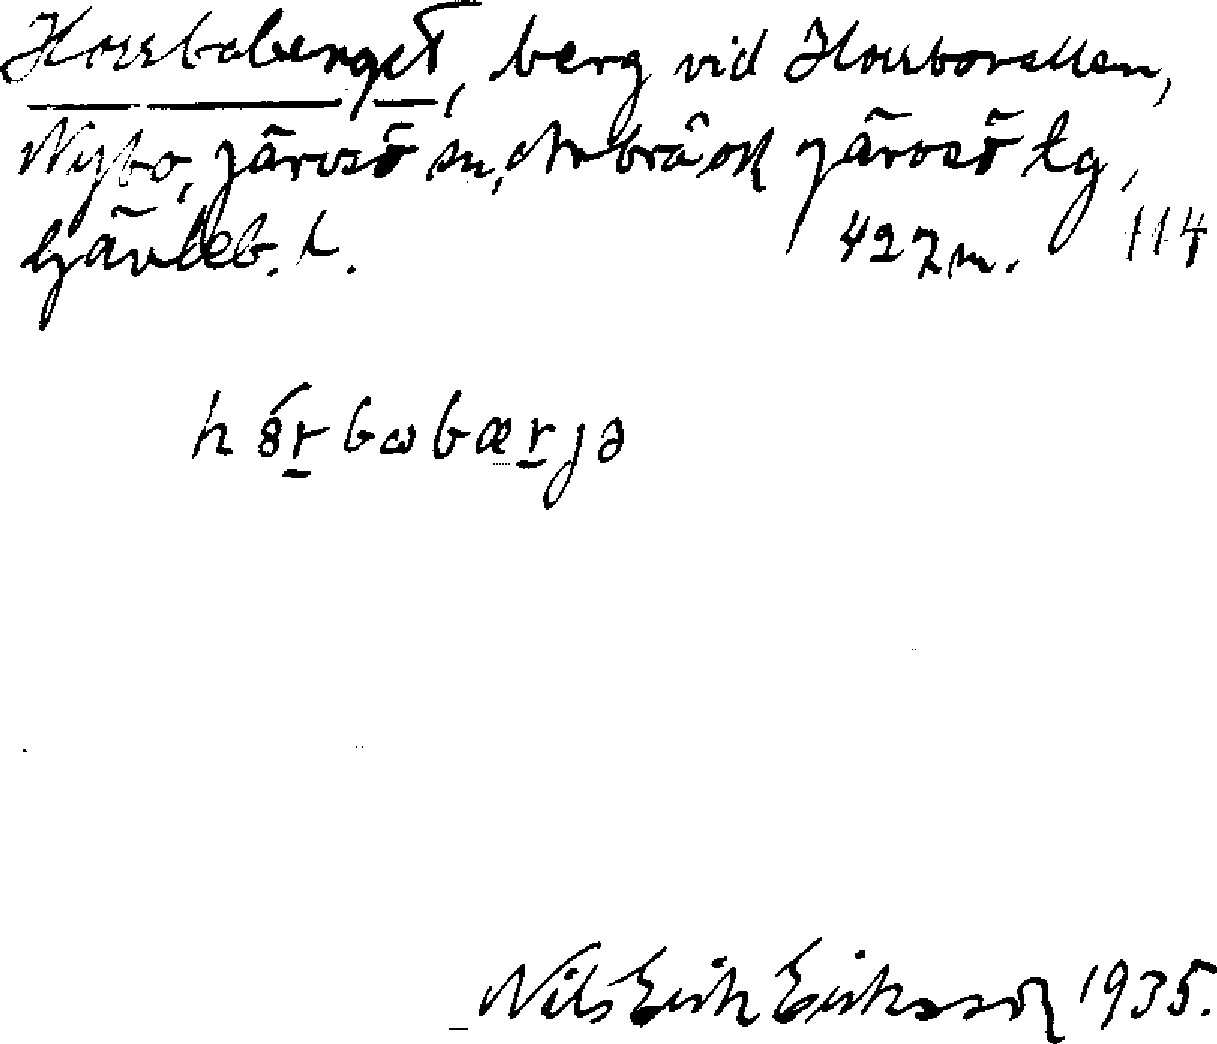 Horrboberget, berg vid Horrbovallen,
Nybo, Järvsö sn, Arbrå och Järvsö tg,
Gävleb. l. 427 m. 114
Nils Erik Eriksson 1935.